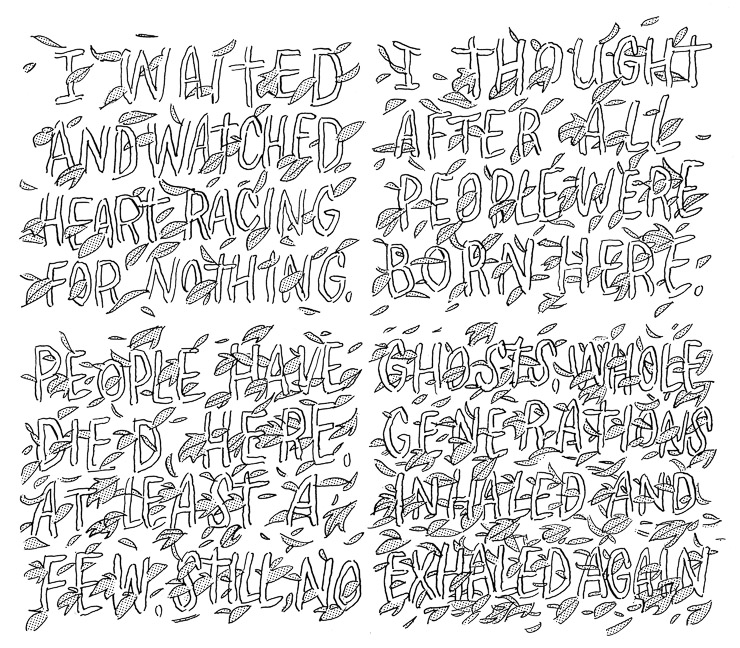 I WAITED
AND WATCHED,
HEART RACING
FOR NOTHING.
I THOUGHT
AFTER ALL
PEOPLE WERE
BORN HERE.
PEOPLE HAVE
DIED HERE.
AT LEAST A
FEW. STILL, NO
GHOSTS. WHOLE
GENERATIONS
INHALED AND
EXHALED AGAIN